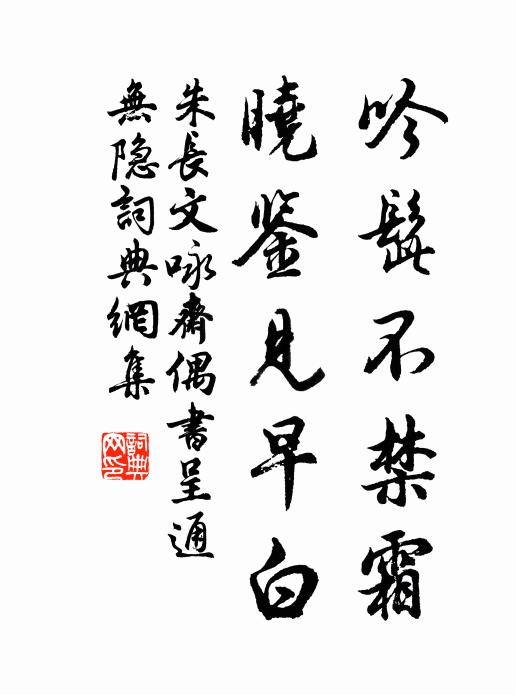 吟髭不禁霜
曉鉴見早白
朱長文咏齋偶書呈通
無隐詞典網集
詞典网印